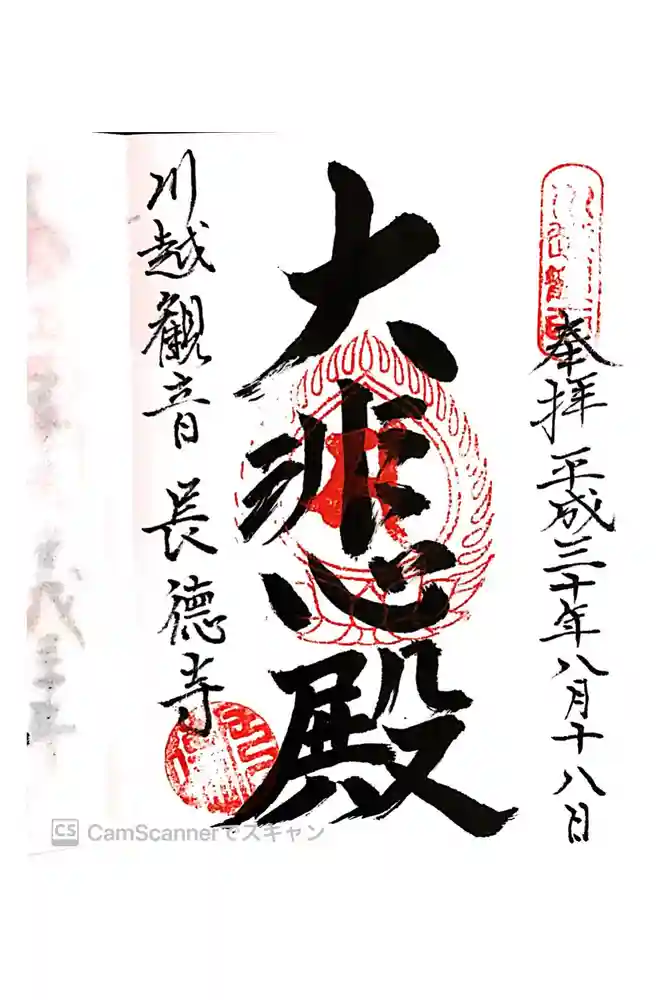 奉拝 平成三十年八月十八日
大悲殿
川越観音 長徳寺
CS CamScannerでスキャン